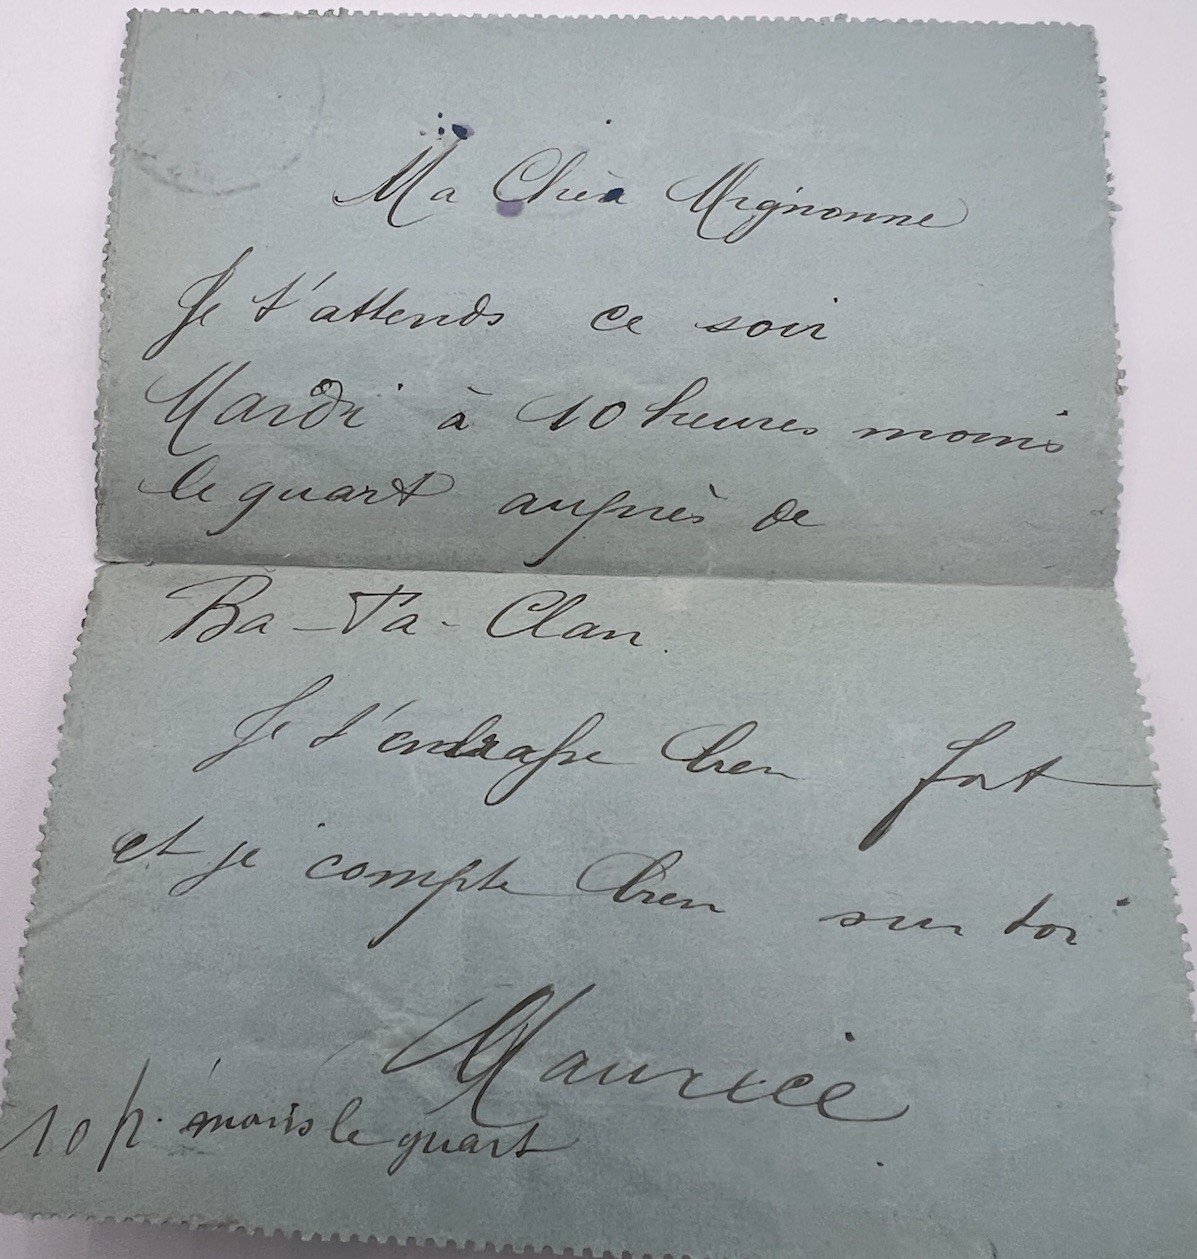 Ma Chèr Mignonne
Je t'attends ce soir
Mardi à 10 heures moins
le quart auprès de
Ba-Ta-Clan.
Je t'embrasse bien fort
et je compte bien sur toi
Maurice
10 h. moins le quart